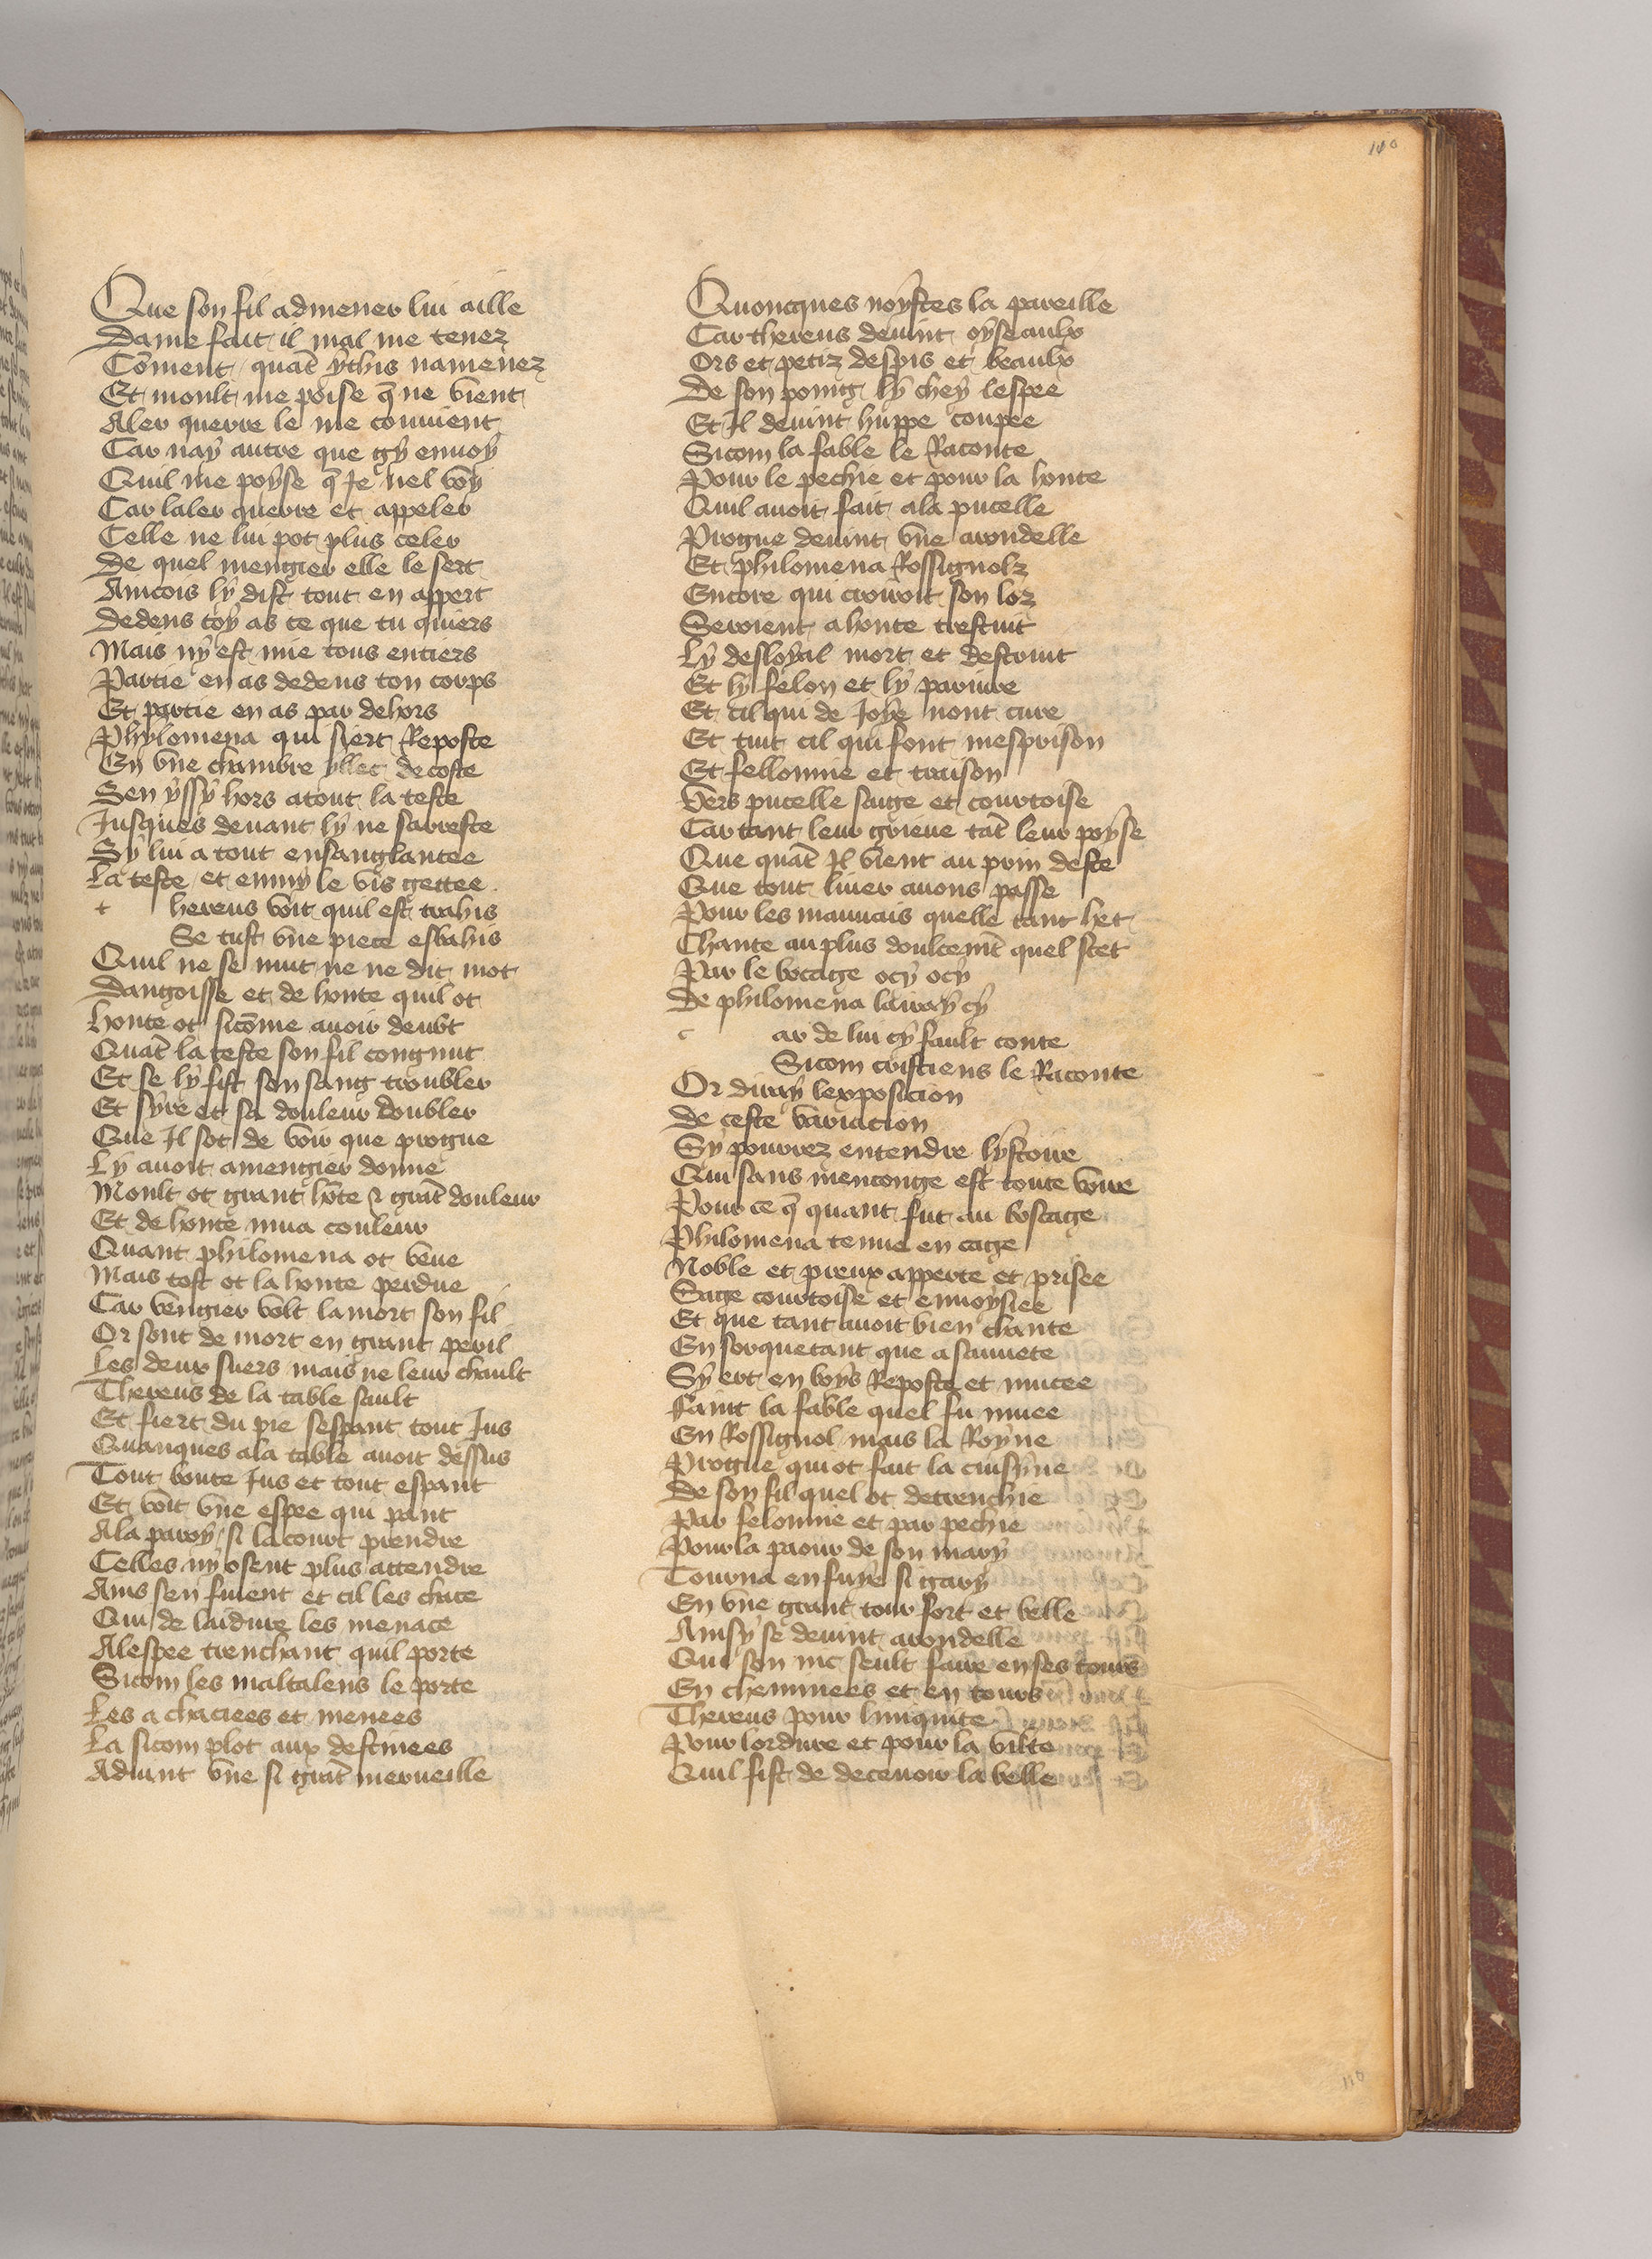 110
Que son fil admener lui aille
Dame fait il mal me tenez
Cōment quāt ythis namenez
Et moult me poise q̄ ne vient
Aler querre le me conuient
Car nay autre que gy enuoy
Quil me poyse q̄ Je nel voy
Car laler querre et appeler
Celle ne lui pot plus celer
De quel mengier elle le sert
Aincois ly dist tout en appert
Dedens toy as ce que tu quiers
Mais ny est mie tous entiers
Partie en as dedens ton corps
Et partie en as par dehors
Phylomena qui siert Reposte
En vne chambre yllec decoste
Sen yssy hors atout la teste
Jusques deuant ly ne sarreste
Sy lui a tout ensanglantee
La teste et enmy le vis gettee
t hereus voit quil est trahis
Se tust vne piece esbahis
Quil ne se mut ne ne dit mot
Dangoisse et de honte quil ot
Honte ot sicōme auoir deubt
Quāt la teste son fil congnut
Et se ly fist son sang troubler
Et syre et sa douleur doubler
Que Il sot de voir que progne
Ly auoit amengier donne
Moult ot grant hōte & grāt douleur
Et de honte mua couleur
Quant philomena ot veue
Mais tost ot la honte perdue
Car vengier volt lamort son fil
Or sont de mort en grant peril
Les deux suers mais ne leur chault
Thereus de la table sault
Et fiert du pie sespant tout Jus
Quanques ala table auoit dessus
Tout boute Jus et tout espant
Et voit vne espee qui pant
Ala paroy si lacourt prendre
Celles ny osent plus attendre
Ains sen fuient et cil les chace
Qui de laidure les menace
Alespee trenchant quil porte
Sicom les maltalens le porte
Les a chaciees et menees
La sicom plot aux destinees
Aduint vne si grāt merueille
Quoncques noystes la pareille
Car thereus deuint oyseaulx
Ors et petiz despis et beaulx
De son poing ly chey lespee
Et Il deuint huppe coupee
Sicom la fable le Raconte
Pour le pechie et pour la honte
Quil auoit fait ala pucelle
Progne deuint vne arondelle
Et philomena Rossignolz
Encore qui crouroit son loz
Seroient ahonte trestuit
Ly desloyal mort et destruit
Et ly felon et ly pariure
Et cil qui de Joye nont cure
Et tuit cil qui font mesprison
Et fellonnie et traison
Vers pucelle saige et courtoise
Car tant leur grieue tāt leur poyse
Que quāt Il vient au prin deste
Que tout liuer auons passe
Pour les mauuais quelle tant het
Chante au plus doulcemēt quel scet
Par le bocage ocy ocy
De philomena lairay cy
c ar de lui cy fault conte
Sicom cristiens le Raconte
Or diray lexposicion
De ceste variacion
Sy pourrez entendre lystoire
Qui sans menconge est toute voire
Pour ce q̄ quant fut au boscage
Philomena tenue en cage
Noble et preux apperte et prisee
Sage courtoise et enuoysiee
Et que tant auoit bien chante
En sorquetant que a sauuete
Sy ert en boys Reposte et mucee
Faint la fable quel fu muee
En Rossignol mais la Royne
Progne qui ot fait la cuisyne
De son fil quel ot detrenchie
Par felonnie et par pechie
Pour la paour de son mary
Tourna en fuye si gary
En vne grant tour fort et belle
Ainsy se deuint arondelle
Qui son nic seult faire en ses tours
En cheminees et en tours
Thereus pour liniquite
Pour lordure et pour la vilte
Quil fist de deceuoir la belle
110